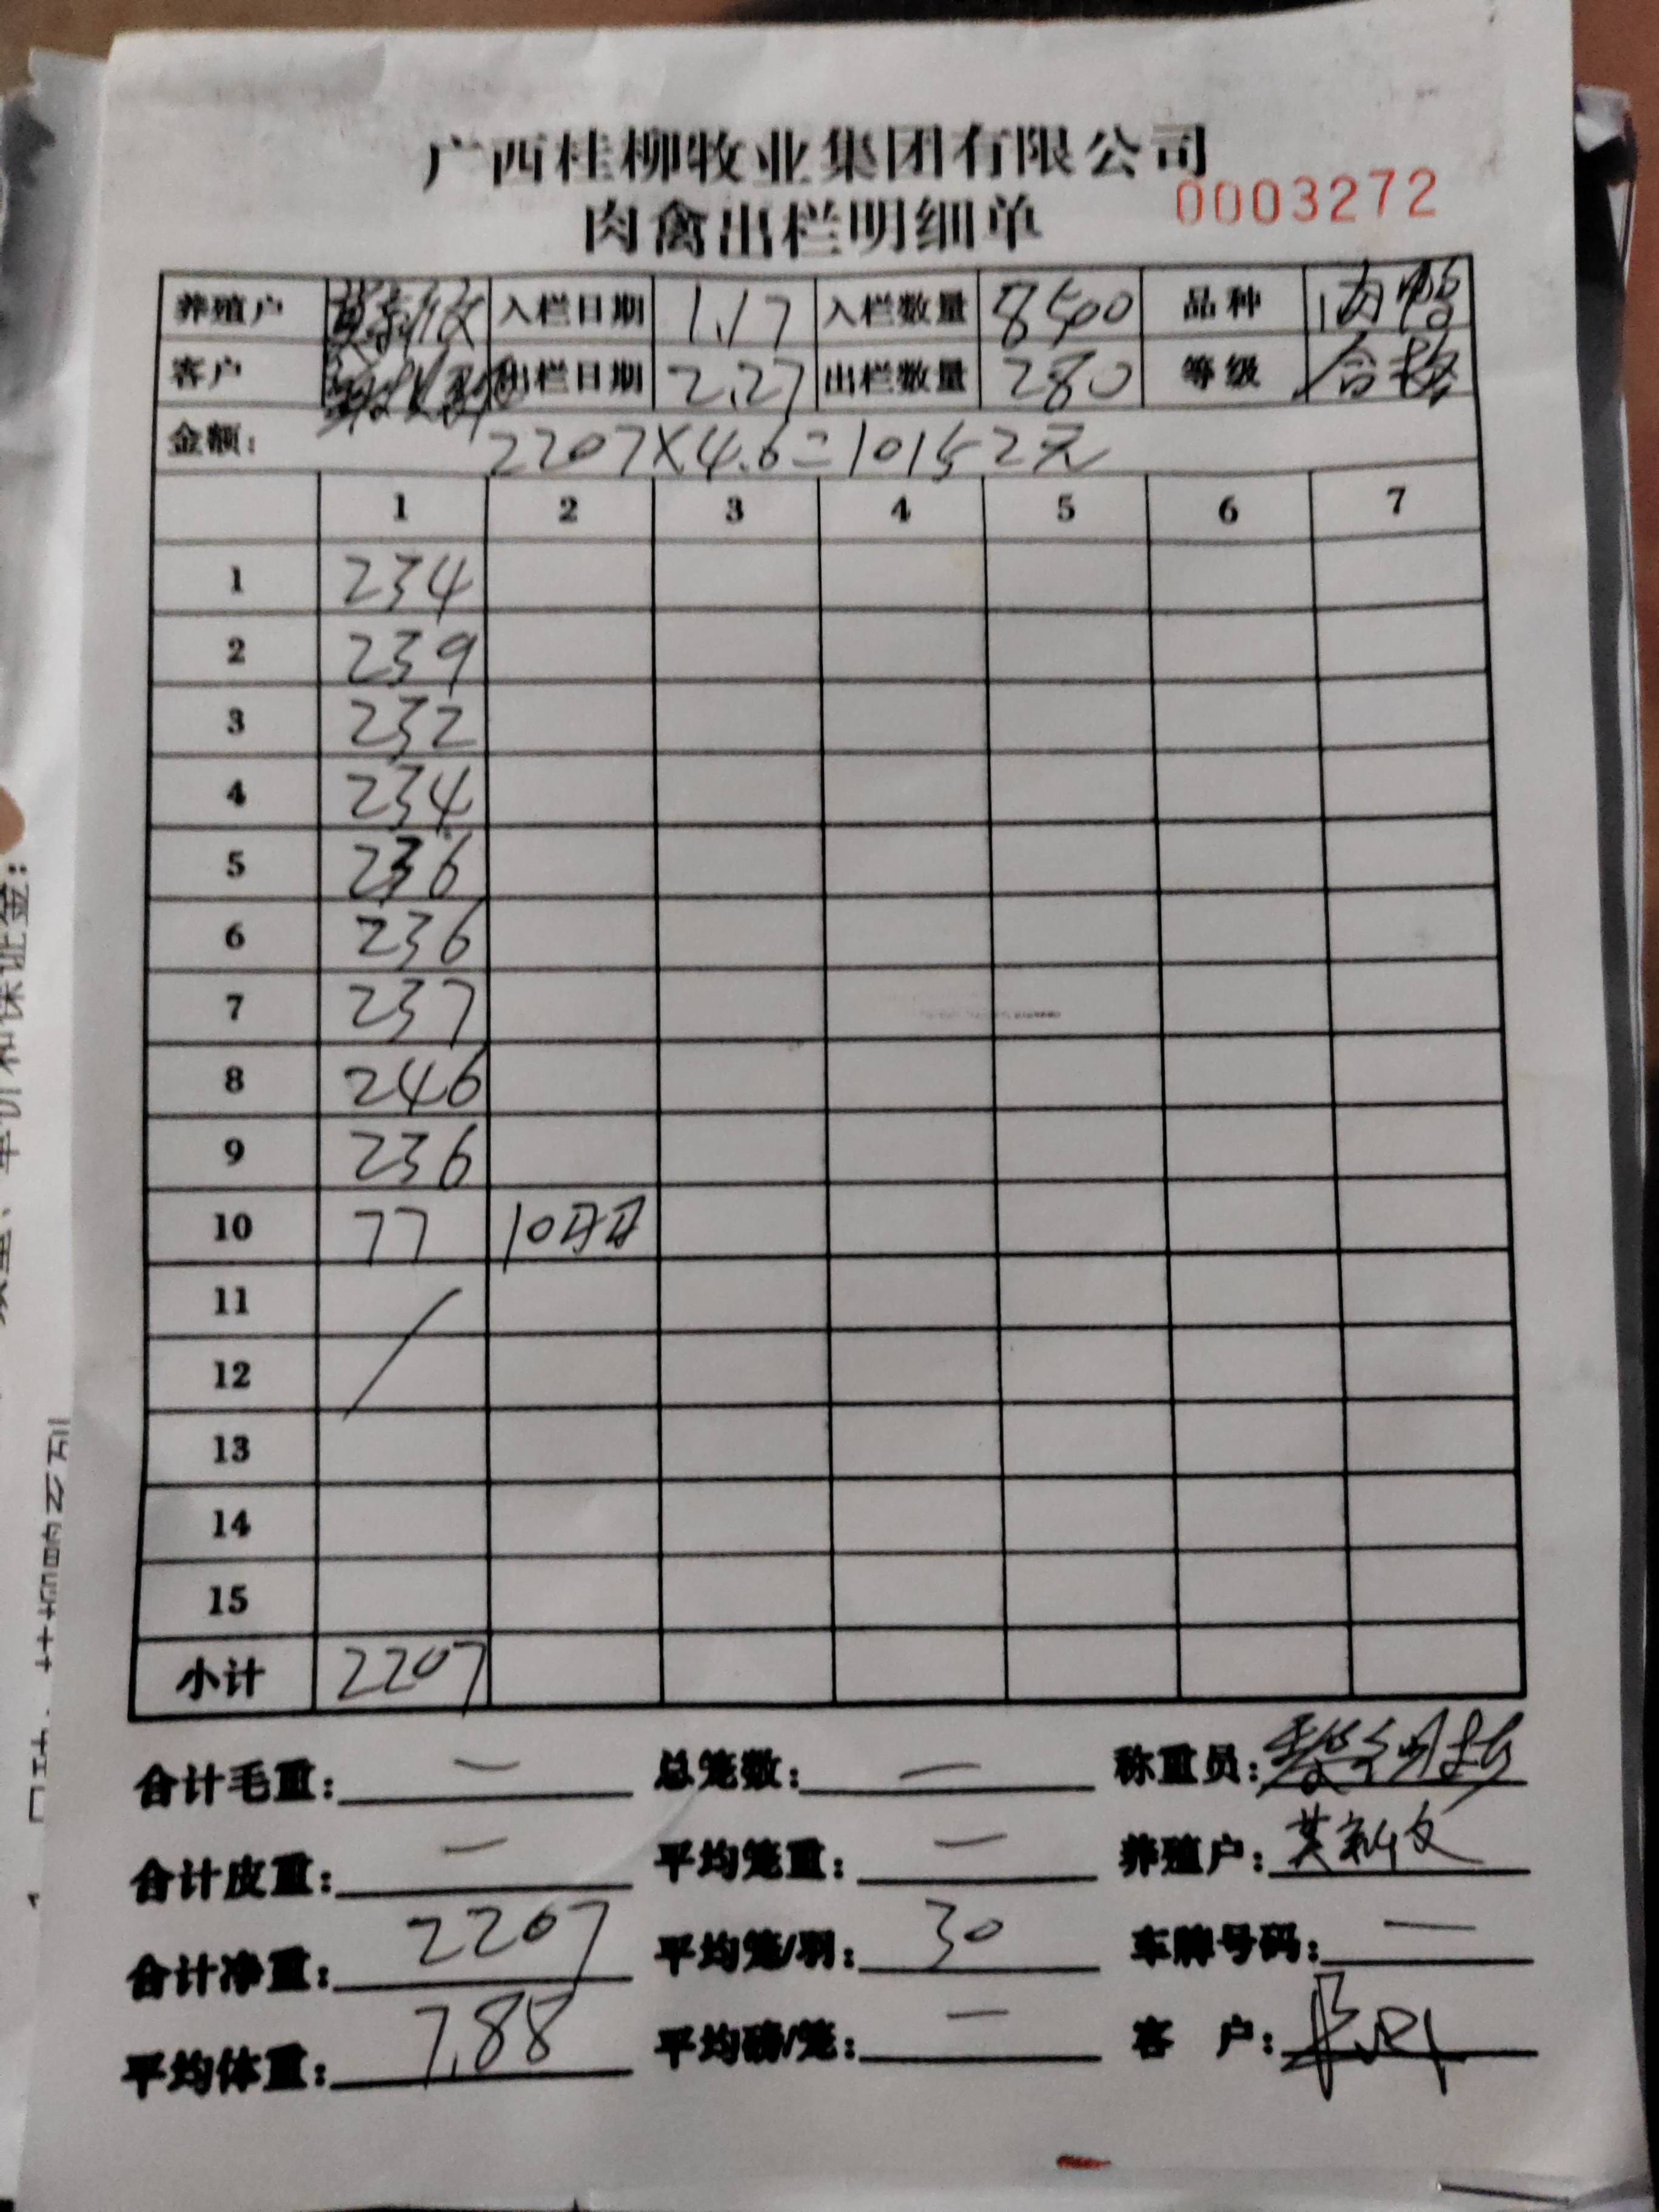 广西桂柳牧业集团有限公司
肉禽出栏明细单 0003272
养殖户 入栏日期 1.17 入栏数量 8500 品种 肉鸭
客户 出栏日期 2.27 出栏数量 280 等级 合格
金额: 2207×4.6=10152元
1 2 3 4 5 6 7
1 234
2 239
3 232
4 234
5 236
6 236
7 237
8 246
9 236
10 77 10
11
12
13
14
15
小计 2207
合计毛重: — 总笼数: — 称重员:
合计皮重: — 平均笼重: — 养殖户:
合计净重: 2207 平均笼/羽: 30 车牌号码: —
平均体重: 7.88 平均磅/笼: — 客 户: